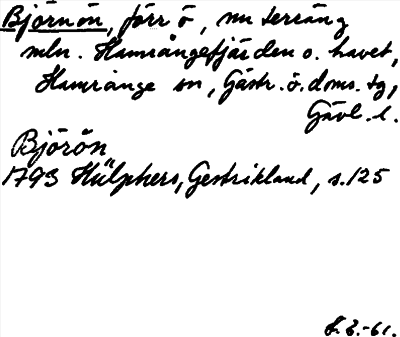 Björnön, förr ö, nu terräng
mln. Hamrångefjärden o. havet,
Hamrånge sn, Gästr. ö. doms. tg,
Gävl. l.
Björön
1793 Hülphers, Gestrikland, s. 125